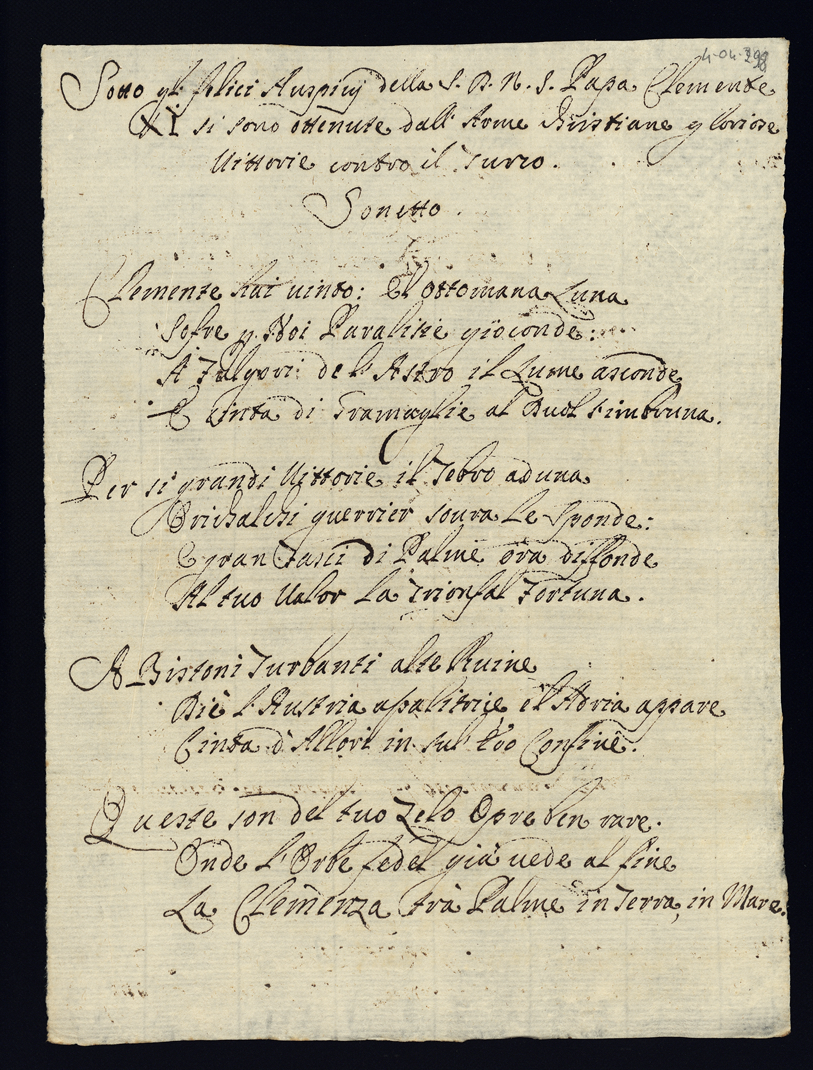 4-04-398
Sotto gl. felici Auspicij della S. D. N. S. Papa Clemente
XI si sono ottenute dall' Arme Christiane gloriose
Vittorie contro il Turco.
Sonetto.
Clemente hai uinto: E l'Ottomana Luna
Sofre p. Noi Paralisie gioconde:
A Fulgori de l'Astro il Lume asconde
E Cinta di Gramaglie al Duol s'imbruna.
Per si grandi Vittorie il Tebro aduna
Orichalchi guerrier soura le Sponde:
E gran Fasci di Palme ora diffonde
Al tuo Valor La Trionfal Fortuna.
A Bistoni Turbanti alte Ruine
Diè l'Austria e l'Adria appare
Cinta d'Allori in sul tuo Confine.
Queste son del tuo Zelo Opre ben rare.
Onde l'Orbe fedel già uede al fine
La Clemenza trà Palme in Terra, in Mare.